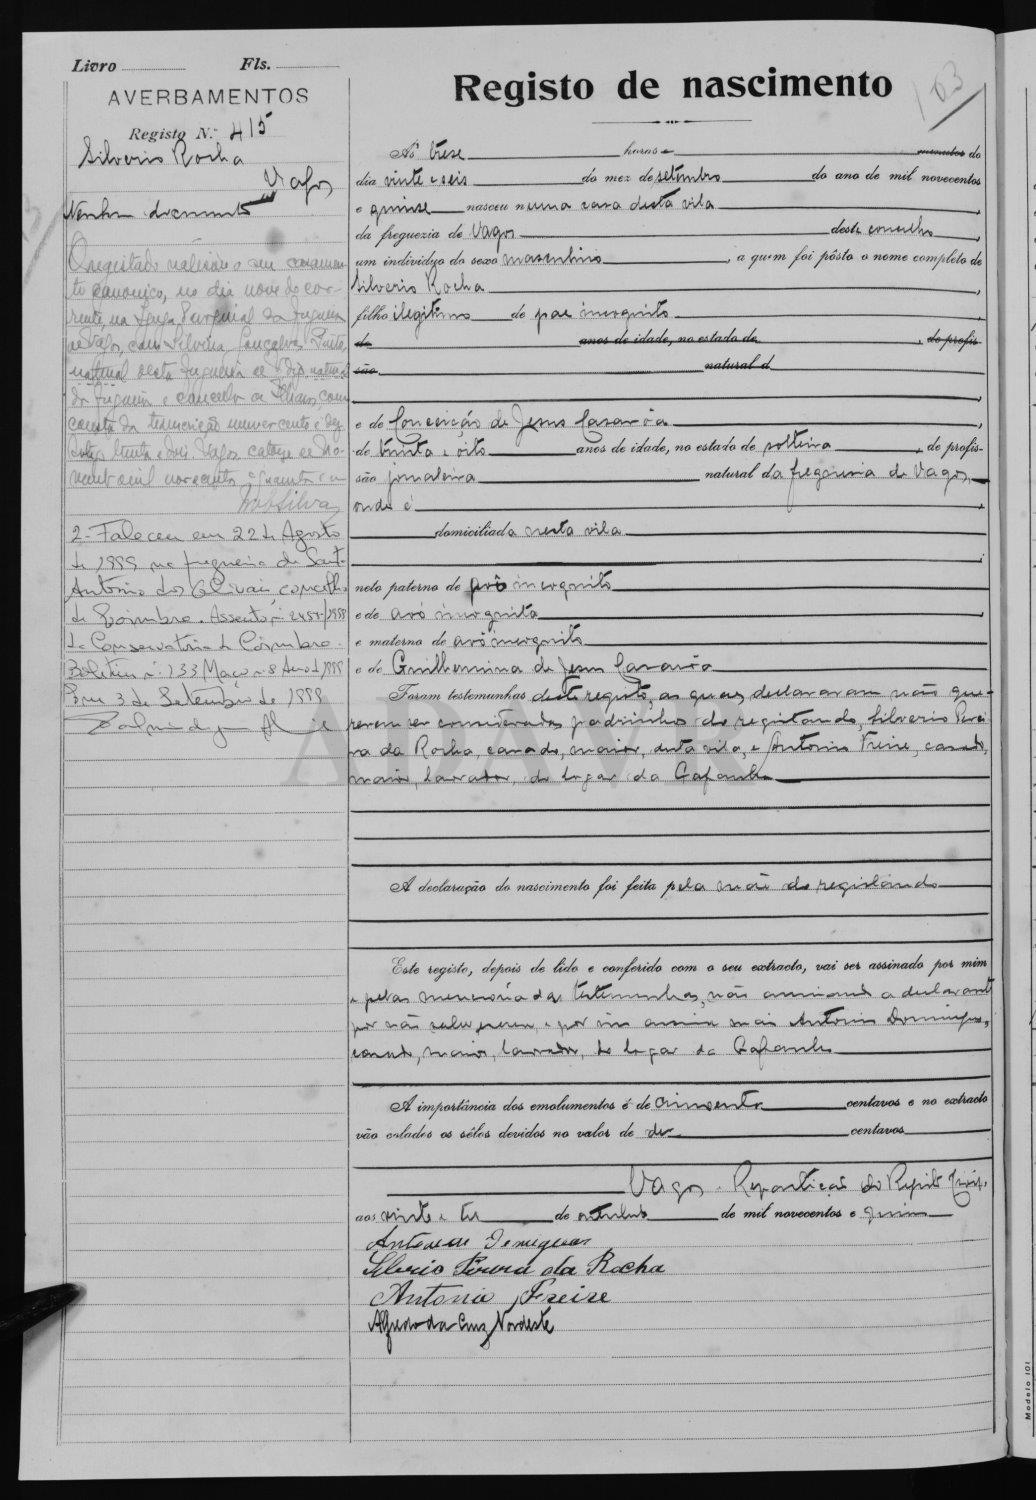 Livro Fls.
AVERBAMENTOS
Registo N.º 415
Silverio Rocha
Vagos
Nenhum documento
O registado realisou o seu casamen-
to canonico, no dia nove do cor-
rente, na Igreja Paroquial da freguesia
de Vagos, com Silvina Gonçalves
natural desta freguesia
da freguesia e concelho de Ilhavo, como
consta da transcrição numero cento e dez
Vagos, catorze de
mil novecentos e quarenta e um
Silva
2 - Faleceu em 22 de Agosto
de 1999 na freguesia de Santo
António dos Olivais, concelho
de Coimbra. Assento nº
da Conservatória de Coimbra.
Boletim nº 133 Maço nº 8
Em 3 de Setembro de 1999
Registo de nascimento
103
Ás trese horas e minutos do
dia vinte e seis do mez de setembro do ano de mil novecentos
e quinse nasceu numa casa desta vila
da freguezia de Vagos deste concelho,
um individuo do sexo masculino, a quem foi pôsto o nome completo de
Silverio Rocha,
filho ilegitimo de pae incognito,
de anos de idade, no estado de, de profis-
são natural d
e de Conceição de Jesus Casarôa,
de trinta e oito anos de idade, no estado de solteira, de profis-
são jornaleira natural da freguesia de Vagos,
onde é
domiciliada nesta vila
neto paterno de avô incognito
e de avó incognita,
e materno de avô incognito
e de Guilhermina de Jesus Casarôa
Foram testemunhas deste registo, as quaes declararam não que-
rerem ser consideradas padrinhos do registando, Silverio Perei-
ra da Rocha, casado, maior, desta vila, e Antonio Freire, casado,
maior, lavrador, do logar da Gafanha
A declaração do nascimento foi feita pela mãe do registando
Este registo, depois de lido e conferido com o seu extracto, vai ser assinado por mim
e pelas mencionadas testemunhas, não assinando a declarante
por não saber escrever, e por isso assina mais Antonio Domingues,
casado, maior, lavrador, do logar da Gafanha
A importância dos emolumentos é de cincoenta centavos e no extracto
vão colados os sêlos devidos no valor de dez centavos
Vagos, Repartição do Registo Civil,
aos vinte e tres de outubro de mil novecentos e quinse
Antonio Domingues
Silverio Pereira da Rocha
Antonio Freire
Alfredo da Cruz Nordeste
ADAVR
Modelo 101